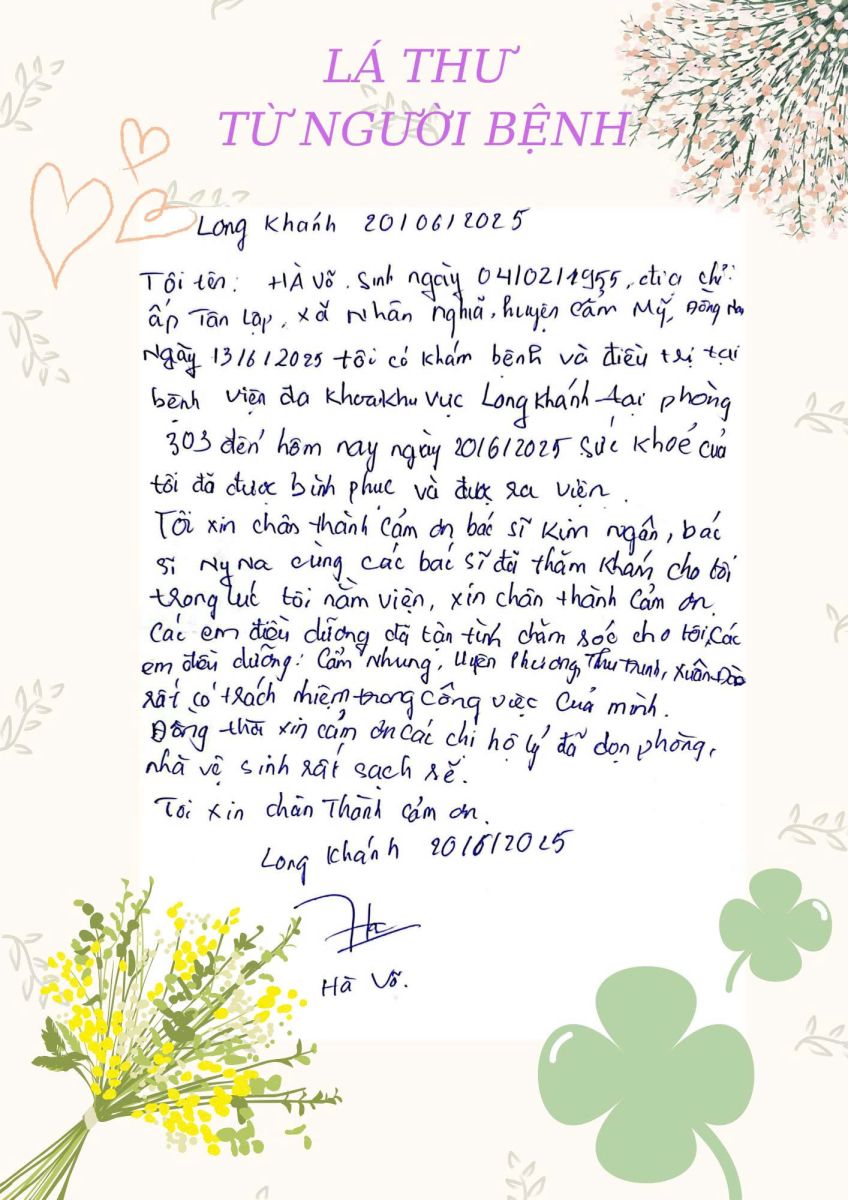 LÁ THƯ
TỪ NGƯỜI BỆNH
Long Khánh 20/06/2025
Tôi tên: HÀ Võ. Sinh ngày 04/02/1955, địa chỉ:
ấp Tân Lập, xã Nhân Nghĩa, huyện Cẩm Mỹ, Đồng Nai
Ngày 13/6/2025 tôi có khám bệnh và điều trị tại
bệnh viện đa khoa khu vực Long Khánh tại phòng
303 đến hôm nay ngày 20/6/2025 sức khoẻ của
tôi đã được bình phục và được ra viện.
Tôi xin chân thành cảm ơn bác sĩ Kim Ngân, bác
sĩ Ny Na cùng các bác sĩ đã thăm khám cho tôi
trong lúc tôi nằm viện, xin chân thành cảm ơn.
Các em điều dưỡng đã tận tình chăm sóc cho tôi, các
em điều dưỡng: Cẩm Nhung, Uyên Phương, Thu Trinh, Xuân Đào
rất có trách nhiệm trong công việc của mình.
Đồng thời xin cảm ơn các chị hộ lý đã dọn phòng,
nhà vệ sinh rất sạch sẽ.
Tôi xin chân thành cảm ơn.
Long Khánh 20/6/2025
Hà
Hà Võ.